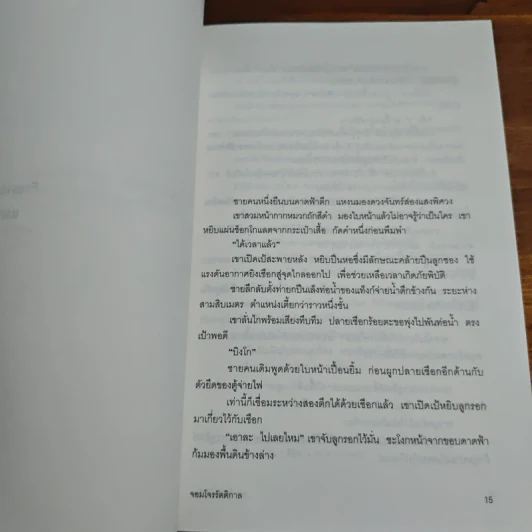 ชายคนหนึ่งยืนบนดาดฟ้าตึก แหงนมองดวงจันทร์ส่องแสงพิศวง
เขาสวมหน้ากากหมวกถักสีดำ มองใบหน้าแล้วไม่อาจรู้ว่าเป็นใคร เขา
หยิบแผ่นช็อกโกแลตจากกระเป๋าเสื้อ กัดคำหนึ่งก่อนพึมพำ
"ได้เวลาแล้ว"
เขาเปิดเป้สะพายหลัง หยิบปืนหอซึ่งมีลักษณะคล้ายปืนลูกซอง ใช้
แรงดันอากาศยิงเชือกสู่จุดไกลออกไป เพื่อช่วยเหลือเวลาเกิดภัยพิบัติ
ชายลึกลับตั้งท่ายกปืนเล็งท่อน้ำของแท็งก์จ่ายน้ำตึกข้างกัน ระยะห่าง
สามสิบเมตร ตำแหน่งเตี้ยกว่าราวหนึ่งชั้น
เขาลั่นไกพร้อมเสียงทึบทึม ปลายเชือกร้อยตะขอพุ่งไปพันท่อน้ำ ตรง
เป้าพอดี
"บิงโก"
ชายคนเดิมพูดด้วยใบหน้าเปื้อนยิ้ม ก่อนผูกปลายเชือกอีกด้านกับ
ตัวยึดของตู้จ่ายไฟ
เท่านี้ก็เชื่อมระหว่างสองตึกได้ด้วยเชือกแล้ว เขาเปิดเป้หยิบลูกรอก
มาเกี่ยวไว้กับเชือก
"เอาละ ไปเลยไหม" เขาจับลูกรอกไว้มั่น ชะโงกหน้าจากขอบดาดฟ้า
ก้มมองพื้นดินข้างล่าง
จอมโจรรัตติกาล
15